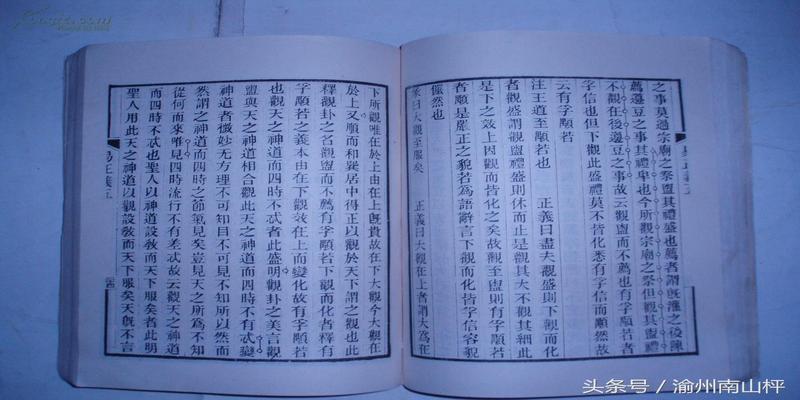 之事莫過宗廟之祭盥其禮盛也薦者謂既灌之後陳
薦籩豆之事其禮卑也今所觀宗廟之祭但觀其盥禮
不觀在後籩豆之事故云觀盥而不薦也有孚顒若者
孚信也但下觀此盛禮莫不皆化悉有孚信而顒然故
云有孚顒若
注王道至顒若也 正義曰盡夫觀盛則下觀而化
者觀盛謂觀盥禮盛則休而止是觀其大不觀其細此
是下之效上因觀而皆化之矣故觀至盥則有孚顒若
者顒是嚴正之貌若為語辭言下觀而化皆孚信容貌
儼然也
彖曰大觀至服矣 正義曰大觀在上者謂大為在
下所觀唯在於上由在上既貴故在下大觀今大觀在
於上又順而和巽居中得正以觀於天下謂之觀也此
釋觀卦之名觀盥而不薦有孚顒若下觀而化者釋有
孚顒若之義本由在下觀效在上而變化故有孚顒若
也觀天之神道而四時不忒者此盛明觀卦之美言觀
盥與天之神道相合觀此天之神道而四時不有忒變
神道者微妙无方理不可知目不可見不知所以然而
然謂之神道而四時之節氣見矣豈見天之所為不知
從何而來唯見四時流行不有差忒故云觀天之神道
而四時不忒也聖人以神道設教而天下服矣者此明
聖人用此天之神道以觀設教而天下服矣天既不言
易正義五
头条号 / 渝州南山枰